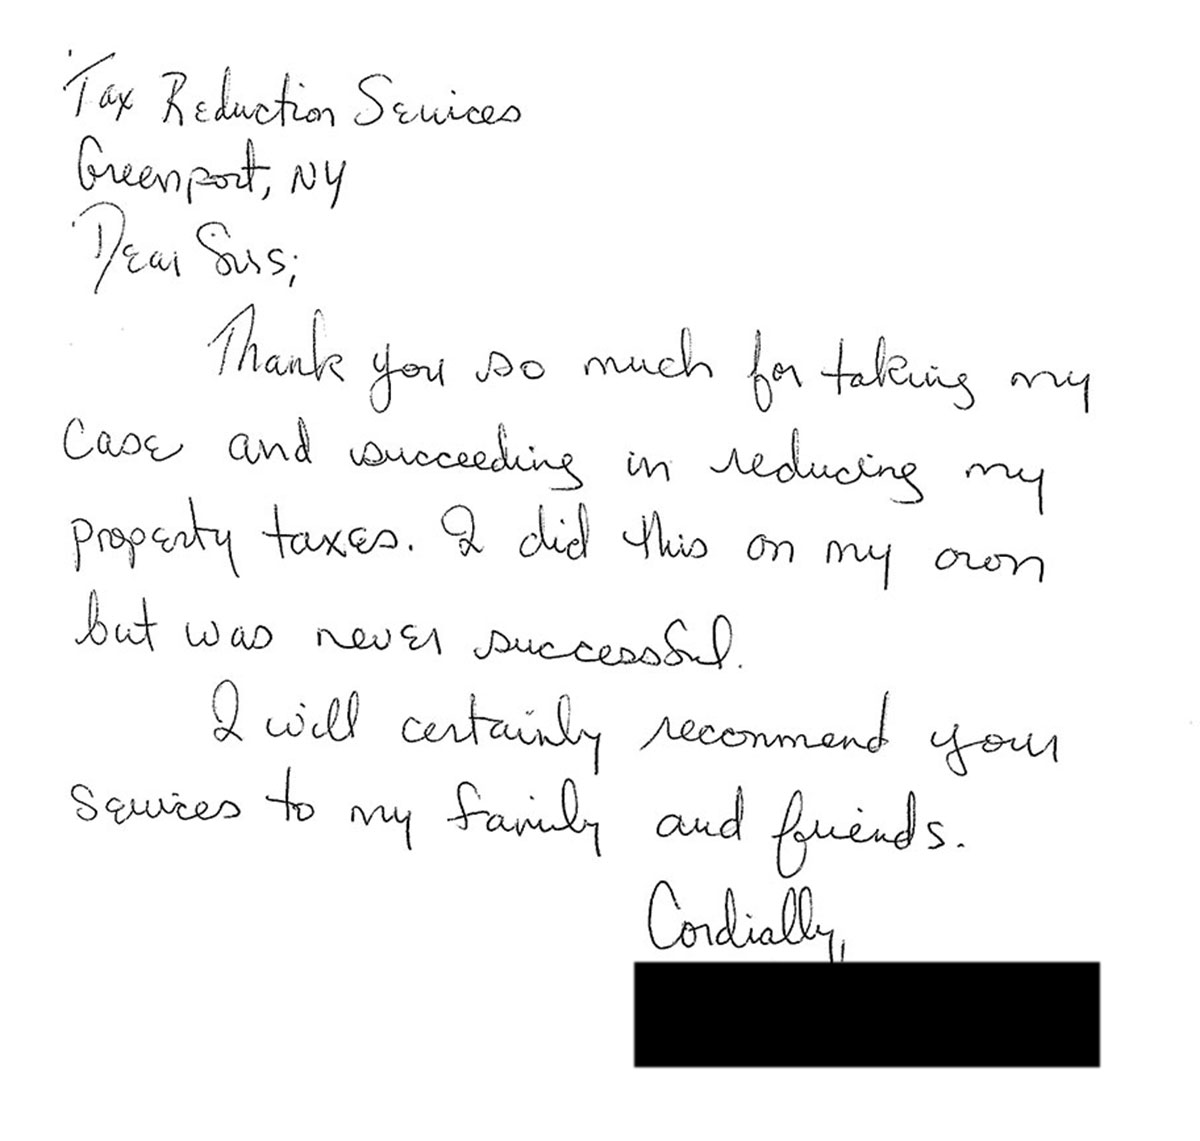 Tax Reduction Services
Greenport, NY
Dear Sirs;
Thank you so much for taking my
case and succeeding in reducing my
property taxes. I did this on my own
but was never successful.
I will certainly recommend your
services to my family and friends.
Cordially,